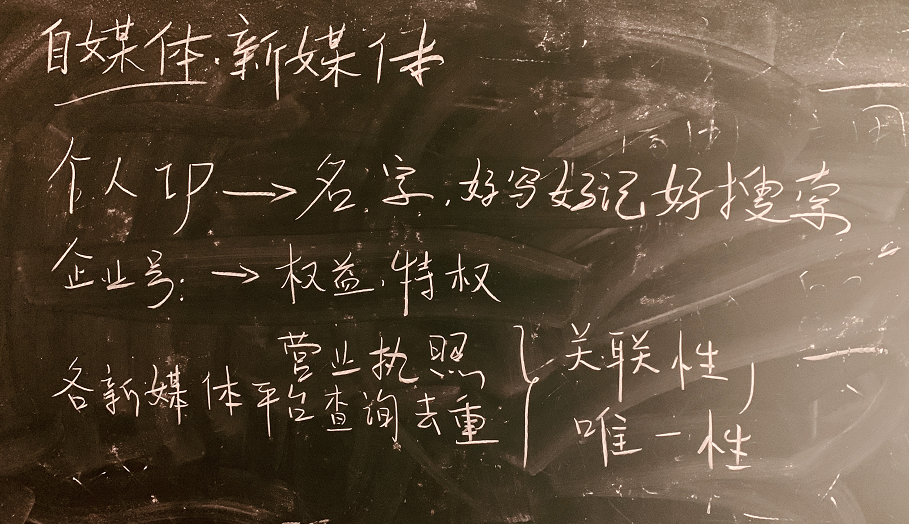 自媒体.新媒体
个人IP→名字.好写好记好搜索
企业号:→权益.特权
营业执照
各新媒体平台查询去重
关联性,
唯一性